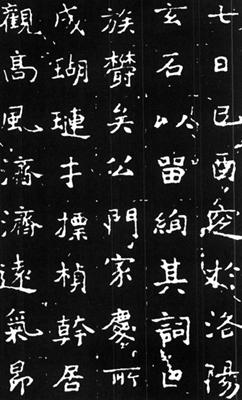 七日己酉窆於洛陽
玄石以留絢其詞曰
族欝矣公門家慶所
成瑚璉才摽楨幹居
觀高風濟濟遠氣昂